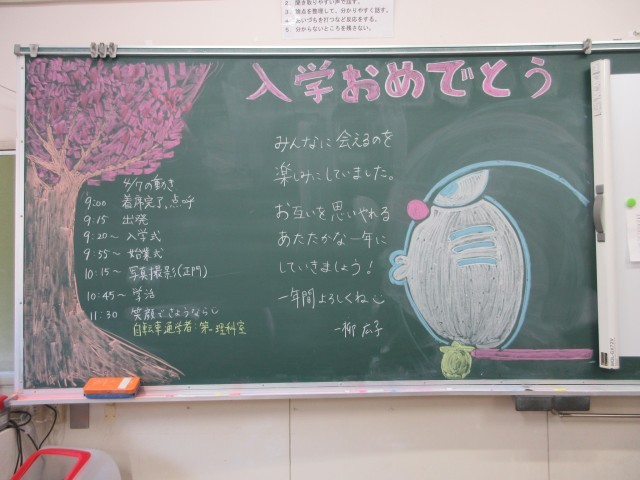 2. 聞き取りやすい声で話す。
3. 要点を整理して、分かりやすく話す。
4. あいづちを打つなど反応をする。
5. 分からないところを残さない。
入学おめでとう
4/7の動き
9:00 着席完了、点呼
9:15 出発
9:20〜 入学式
9:55〜 始業式
10:15〜 写真撮影(正門)
10:45〜 学活
11:30 笑顔でさようなら
自転車通学者 第一理科室
みんなに会えるのを
楽しみにしていました。
お互いを思いやれる
あたたかな一年に
していきましょう!
一年間よろしくね
一柳 広子